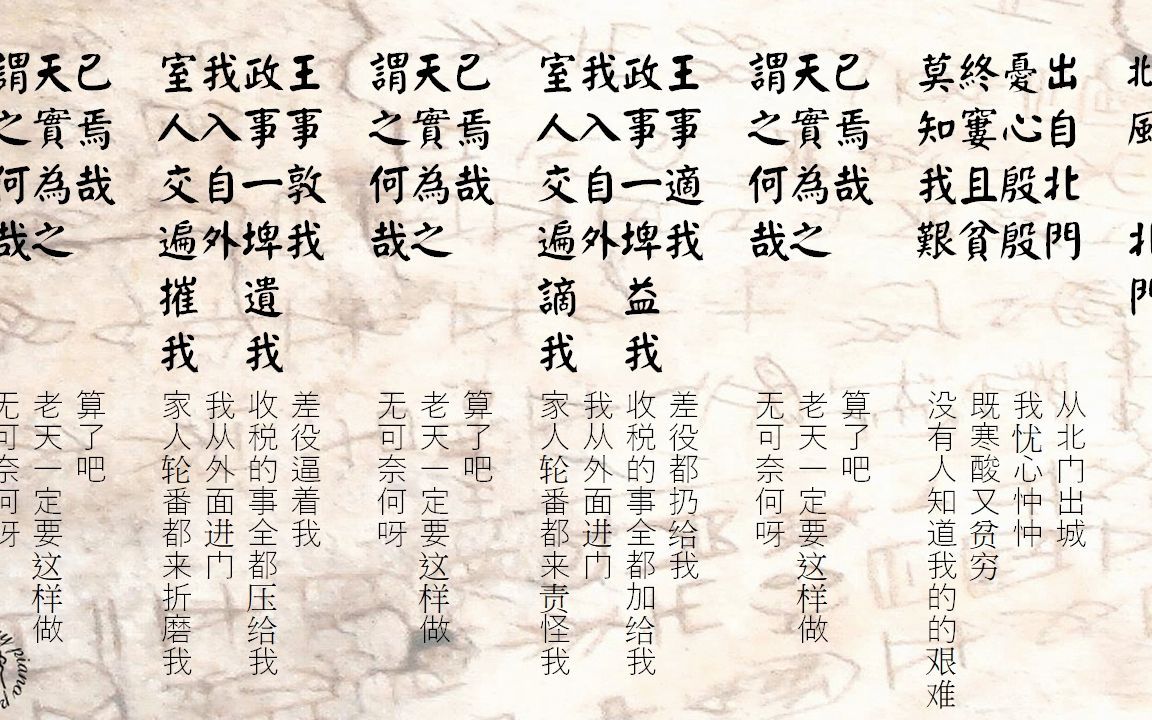 北風 北門
出自北門
憂心殷殷
終窶且貧
莫知我艱
从北门出城
我忧心忡忡
既寒酸又贫穷
没有人知道我的的艰难
已焉哉
天實為之
謂之何哉
算了吧
老天一定要这样做
无可奈何呀
王事適我
政事一埤益我
我入自外
室人交遍謫我
差役都扔给我
收税的事全都加给我
我从外面进门
家人轮番都来责怪我
已焉哉
天實為之
謂之何哉
算了吧
老天一定要这样做
无可奈何呀
王事敦我
政事一埤遺我
我入自外
室人交遍摧我
差役逼着我
收税的事全都压给我
我从外面进门
家人轮番都来折磨我
已焉哉
天實為之
謂之何哉
算了吧
老天一定要这样做
无可奈何呀
piano